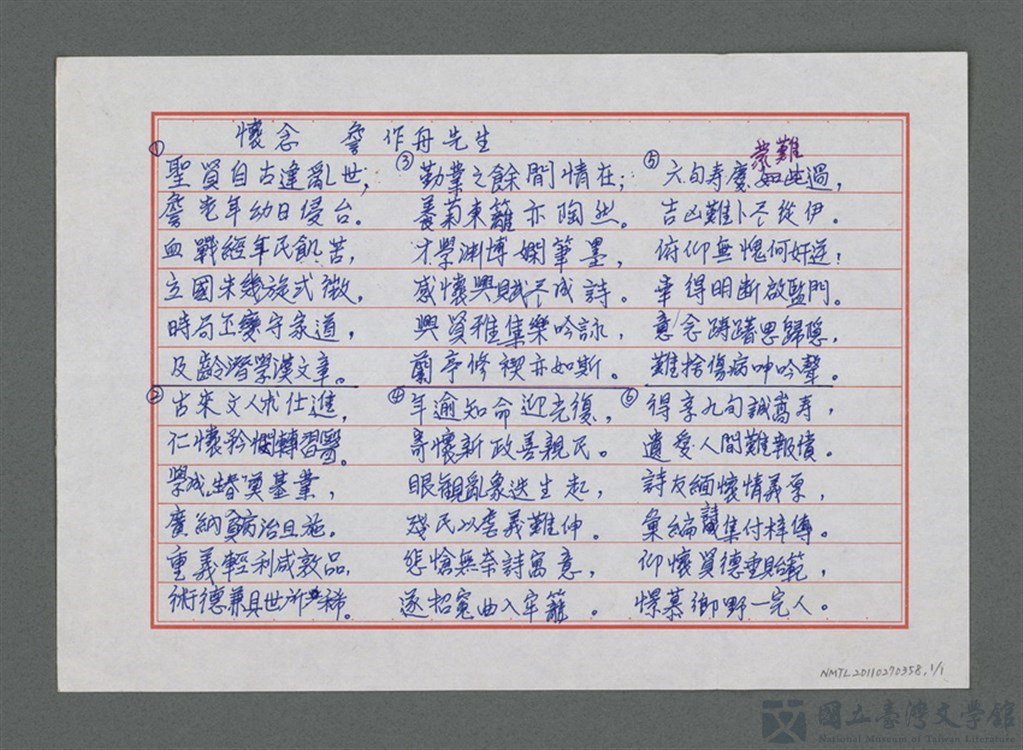 懷念 詹作舟先生
①
聖賢自古逢亂世,
詹老年幼日侵台。
血戰經年民飢苦,
立國未幾旋式微,
時局丕變守家道,
及齡潛學漢文章。
②
古來文人求仕進,
仁懷矜憫轉習醫。
學成踏奠基業,
廣納貧病治且施。
重義輕利咸敦品,
術德兼具世所稀。
③
勤業之餘閒情在;
養菊東籬亦陶然。
才學淵博嫻筆墨,
感懷興賦不成詩。
興賢雅集樂吟詠,
蘭亭修禊亦如斯。
④
年逾知命迎光復,
寄懷新政善親民。
眼觀亂象迭生起,
殘民以虐義難伸。
悲愴無奈詩寓意,
遂招冤曲入牢籠。
⑤
六旬壽慶蒙難過,
吉凶難卜不從伊。
俯仰無愧何奸逆!
幸得明斷啟監門。
意念躊躇思歸隱,
難捨傷病呻吟聲。
⑥
得享九旬誠嵩壽,
遺愛人間難報償。
詩友緬懷情義厚,
彙編詩集付梓傳。
仰懷賢德重貽範,
憬慕鄉野一完人。
NMTL20110270358, 1/1
國立臺灣文學館
National Museum of Taiwan Literature